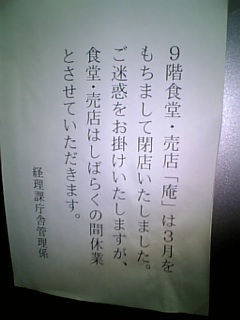 ９階食堂・売店「庵」は３月を
もちまして閉店いたしました。
ご迷惑をお掛けいたしますが、
食堂・売店はしばらくの間休業
とさせていただきます。
経理課庁舎管理係